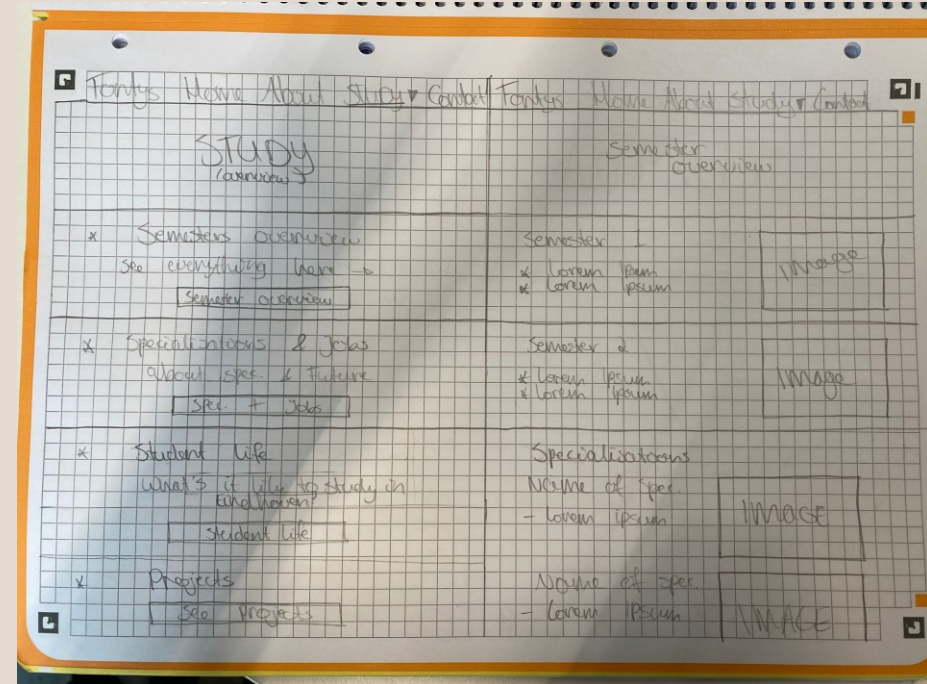 Fontys Home About Study ▾ Contact
STUDY
(overview)
* Semesters overview
see everything here →
semester overview
* Specializatioons & Jobs
about spec. & Future
spec. + Jobs
* Student Life
What's it like to study in
Eindhoven?
Student Life
* Projects
See projects
Fontys Home About Study ▾ Contact
Semester
overview
Semester 1
* Lorem Ipsum
* Lorem Ipsum
Image
Semester 2
* Lorem Ipsum
* Lorem Ipsum
Image
Specializatioons
Name of Spec.
- Lorem ipsum
IMAGE
Name of spec.
- Lorem Ipsum
IMAGE